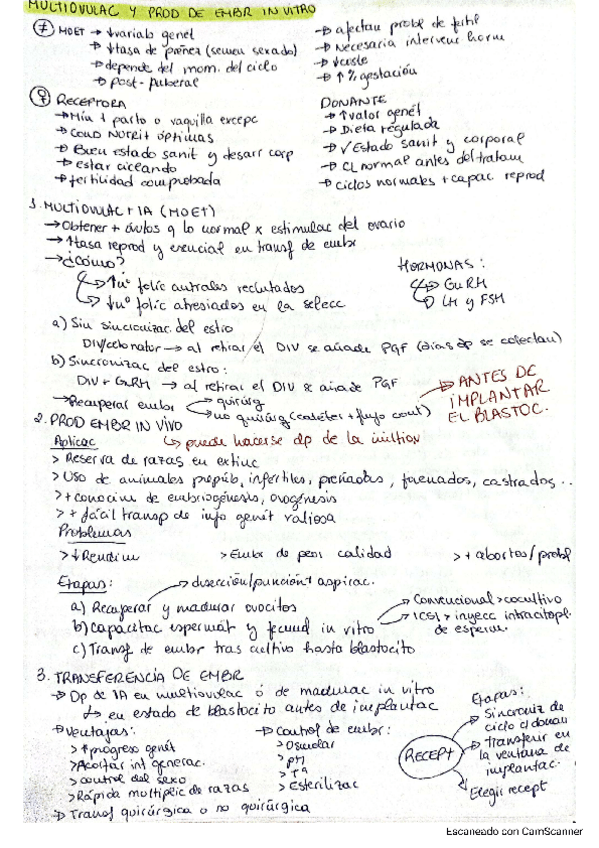 MULTIOVULAC Y PROD DE EMBR IN VITRO
MOET → ↓variab genet
→ ↓tasa de preñez (semen sexado)
→ depende del mom. del ciclo
→ post-puberal
→ afectan probl de fertil
→ Necesaria intervenc horm
→ ↓coste
→ ↑% gestación
♀ RECEPTORA
→ Mín 1 parto o vaquilla excepc
→ Cond NUTRIT óptimas
→ Buen estado sanit y desarr corp
→ estar ciclando
→ fertilidad comprobada
DONANTE
→ ↑valor genét
→ Dieta regulada
→ √ Estado sanit y corporal
→ CL normal antes del tratam
→ ciclos normales + capac reprod
1. MULTIOVULAC + IA (MOET)
→ Obtener + óvulos q lo normal x estimulac del ovario
→ ↑tasa reprod y esencial en transf de embr
→ ¿Cómo?
↑nº folic antrales reclutados
↓nº folic atresiados en la selecc
HORMONAS:
→ GnRH
→ LH y FSH
a) Sin sincronizac. del estro
→ al retirar el DIV se añade PGF (días dp se colectan)
b) Sincronizac del estro:
DIV + GnRH → al retirar el DIV se añade PGF
→ Recuperar embr
quirúrg
no quirúrg (catéter + flujo cont)
→ ANTES DE
IMPLANTAR
EL BLASTOC.
2. PROD EMBR IN VIVO
↳ puede hacerse dp de la
Aplicac
> Reserva de razas en extinc
> Uso de animales prepúb, infértiles, preñadas, faenados, castrados..
> + conocim de embriogénesis, ovogénesis
> + fácil transp de info genét valiosa
Problemas
> ↓ Rendim
> Embr de peor calidad
> + abortos/probl
Etapas:
disección/punción + aspirac.
a) Recuperar y madurar ovocitos
b) Capacitac espermát y fecund in vitro
Convencional > cocultivo
ICSI > inyecc intracitopl.
de esperm.
c) Transf de embr tras cultivo hasta blastocito
3. TRANSFERENCIA DE EMBR
→ Dp de IA en multiovulac ó de madurac in vitro
↳ en estado de blastocito antes de implantac
→ Ventajas:
> ↑progreso genét
> Acortar int generac.
> control del sexo
> Rápida multiplic de razas
→ Control de embr:
> Osmolar
> pH
> Tª
> Esterilizac
RECEPT
Etapas:
→ Sincroniz de
ciclo c/ donan
→ Transferir en
la ventana de
implantac.
→ Elegir recept
→ Transf quirúrgica o no quirúrgica
Escaneado con CamScanner